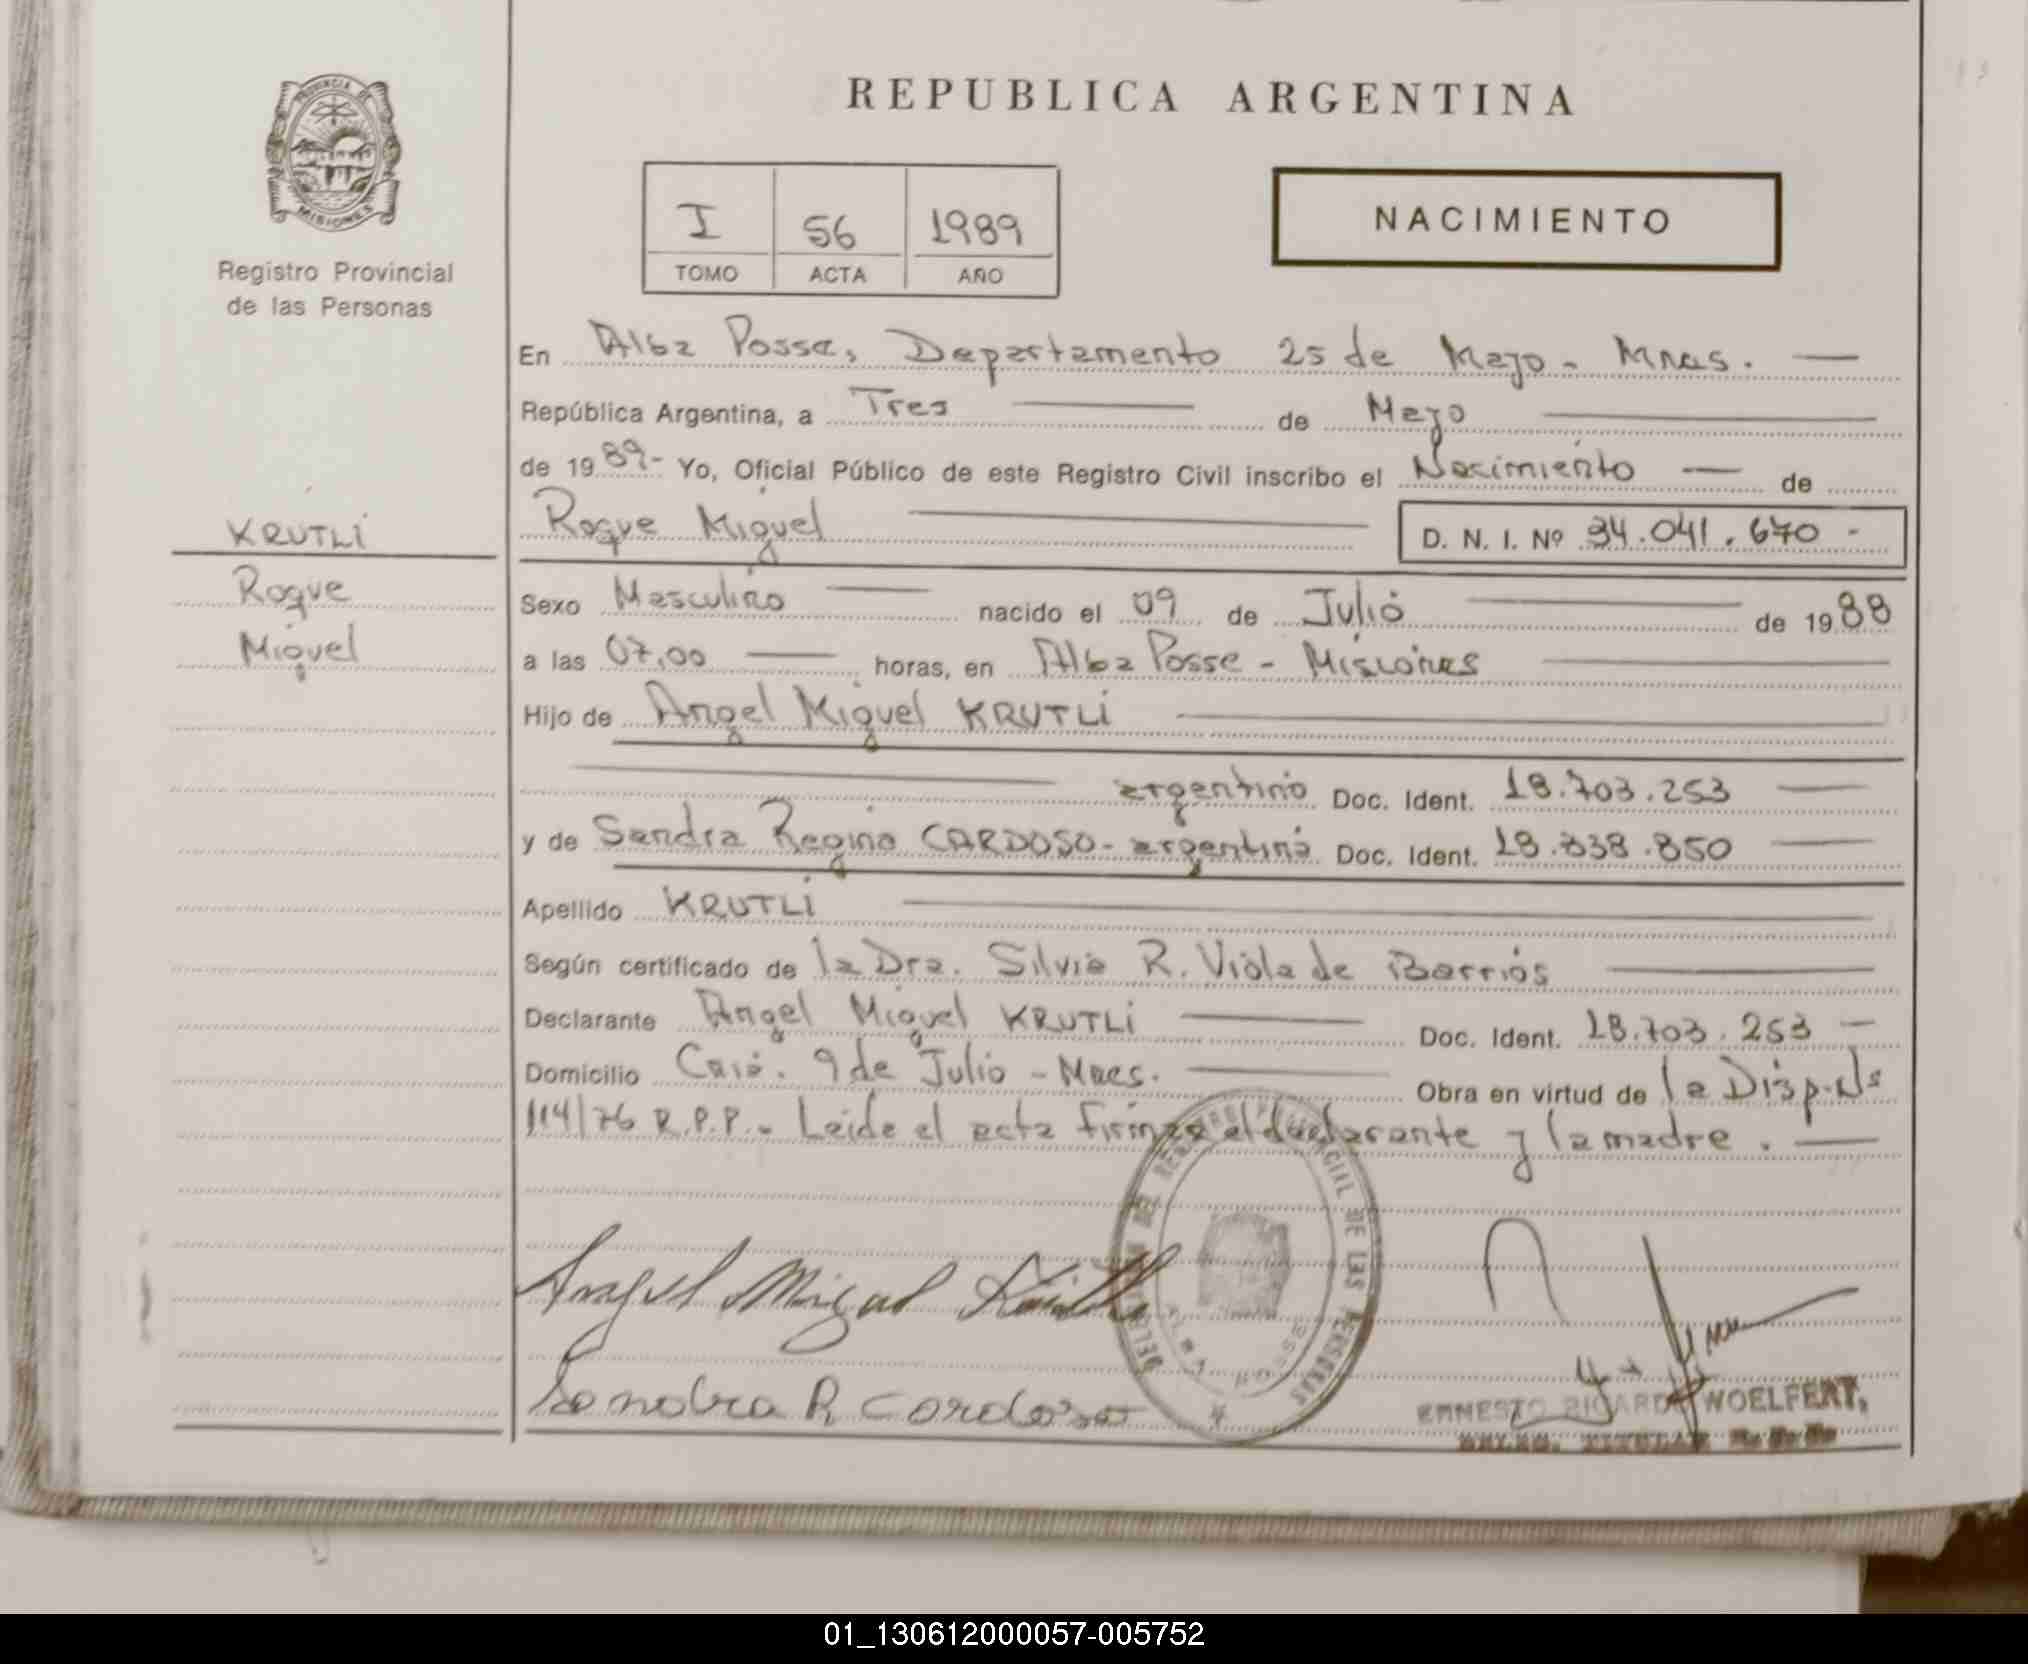 PROVINCIA DE
MISIONES
Registro Provincial
de las Personas
KRUTLI
Roque
Miguel
REPUBLICA ARGENTINA
I 56 1989
TOMO ACTA AÑO
NACIMIENTO
En Alba Posse, Departamento 25 de Mayo - Mnes.
República Argentina, a Tres de Mayo
de 1989- Yo, Oficial Público de este Registro Civil inscribo el Nacimiento de
Roque Miguel D. N. I. Nº 34.041.670 -
Sexo Masculino nacido el 09 de Julio de 1988
a las 07,00 horas, en Alba Posse - Misiones
Hijo de Angel Miguel KRUTLI
argentino Doc. Ident. 18.703.253
y de Sandra Regina CARDOSO - argentina Doc. Ident. 18.838.850
Apellido KRUTLI
Según certificado de la Dra. Silvia R. Viola de Barrios
Declarante Angel Miguel KRUTLI Doc. Ident. 18.703.253 -
Domicilio 9 de Julio - Mnes. Obra en virtud de la Disp. Nº
114/76 R.P.P. - Leida el acta firman el declarante y la madre.
DELEGACION DEL REGISTRO PROVINCIAL DE LAS PERSONAS
ALBA POSSE
Angel Miguel Krutli
Sandra R Cardoso
ERNESTO RICARDO WOELFERT,
DELEG. TITULAR R.P.P.
01_130612000057-005752